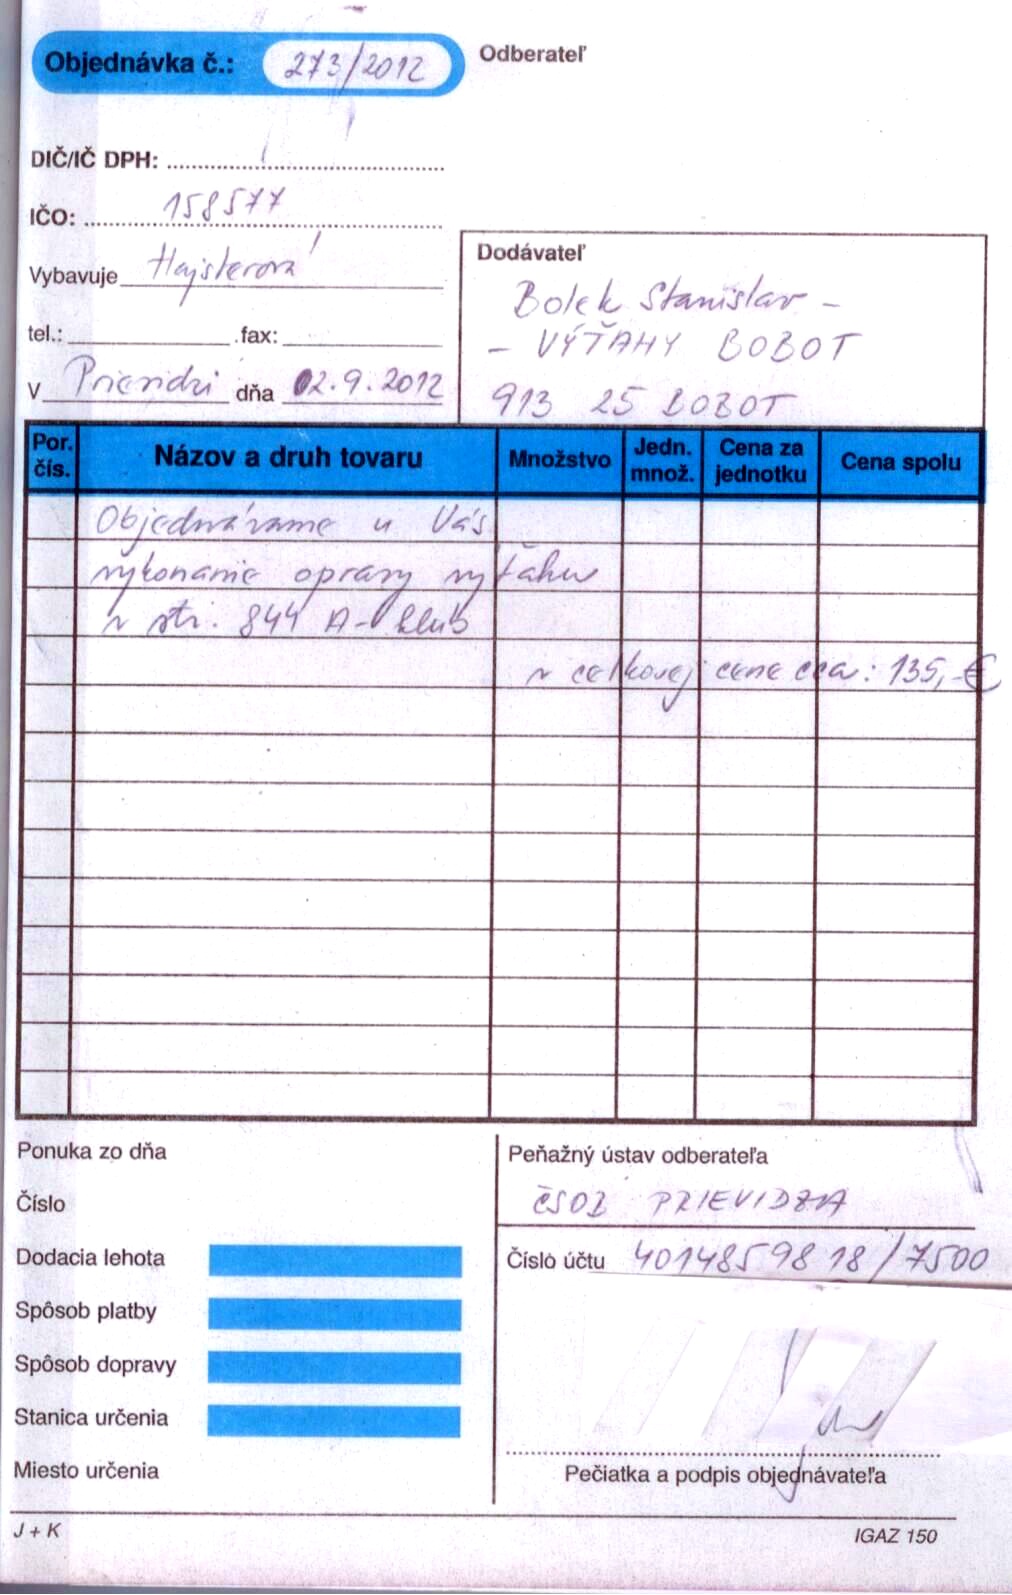 Objednávka č.: 273/2012
Odberateľ
DIČ/IČ DPH:
IČO: 158577
Vybavuje Hajsterová
tel.: fax:
V Prievidzi dňa 02.9.2012
Dodávateľ
Bolek Stanislav -
- VÝŤAHY BOBOT
913 25 BOBOT
Por. čís. Názov a druh tovaru Množstvo Jedn. množ. Cena za jednotku Cena spolu
Objednávame u Vás
vykonanie opravy výťahu
v str. 844 A-klub
v celkovej cene cca: 135,-€
Ponuka zo dňa
Číslo
Dodacia lehota
Spôsob platby
Spôsob dopravy
Stanica určenia
Miesto určenia
Peňažný ústav odberateľa
ČSOB PRIEVIDZA
Číslo účtu 4014859818/7500
Pečiatka a podpis objednávateľa
J + K
IGAZ 150